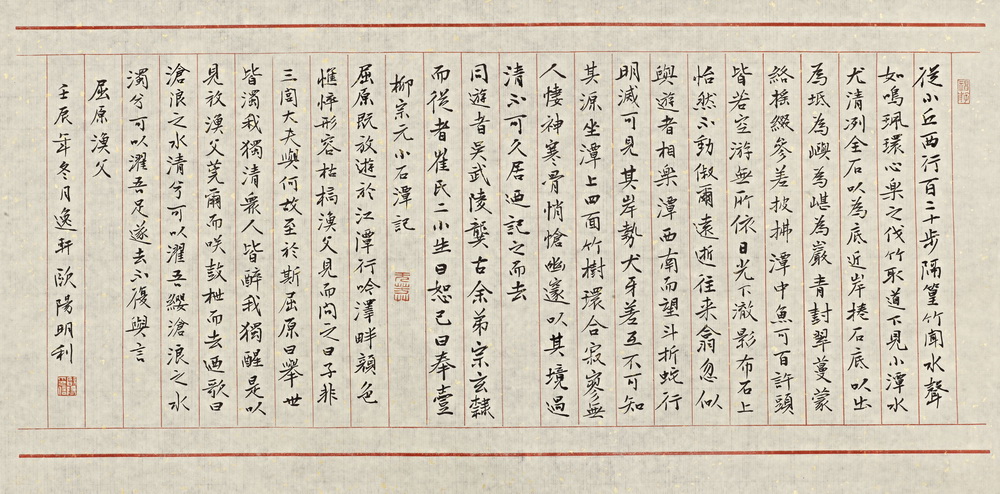 從小丘西行百二十步隔篁竹聞水聲
如鳴珮環心樂之伐竹取道下見小潭水
尤清洌全石以為底近岸捲石底以出
為坻為嶼為嵁為巖青封翠蔓蒙
絡搖綴參差披拂潭中魚可百許頭
皆若空游無所依日光下澈影布石上
怡然不動俶爾遠逝往来翕忽似
與遊者相樂潭西南而望斗折蛇行
明滅可見其岸勢犬牙差互不可知
其源坐潭上四面竹樹環合寂寥無
人悽神寒骨悄愴幽邃以其境過
清不可久居迺記之而去
同遊者吳武陵龔古余弟宗玄隸
而從者崔氏二小生曰恕己曰奉壹
柳宗元小石潭記
屈原既放遊於江潭行吟澤畔顏色
憔悴形容枯槁漁父見而問之曰子非
三閭大夫與何故至於斯屈原曰舉世
皆濁我獨清眾人皆醉我獨醒是以
見放漁父莞爾而咲鼓枻而去迺歌曰
滄浪之水清兮可以濯吾纓滄浪之水
濁兮可以濯吾足遂去不復與言
屈原漁父
壬辰年冬月逸軒歐陽明利